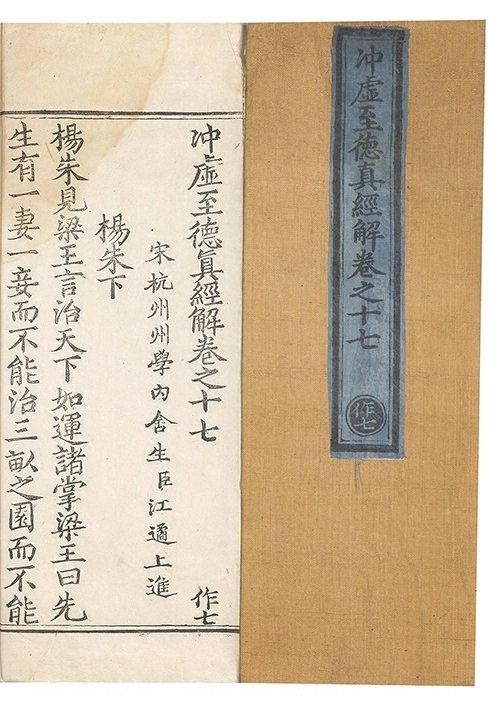 冲虛至德真經解卷之十七
作七
冲虛至德眞經解卷之十七 作七
宋杭州州學內舍生臣江遹上進
楊朱下
楊朱見梁王言治天下如運諸掌梁王曰先
生有一妻一妾而不能治三畝之園而不能